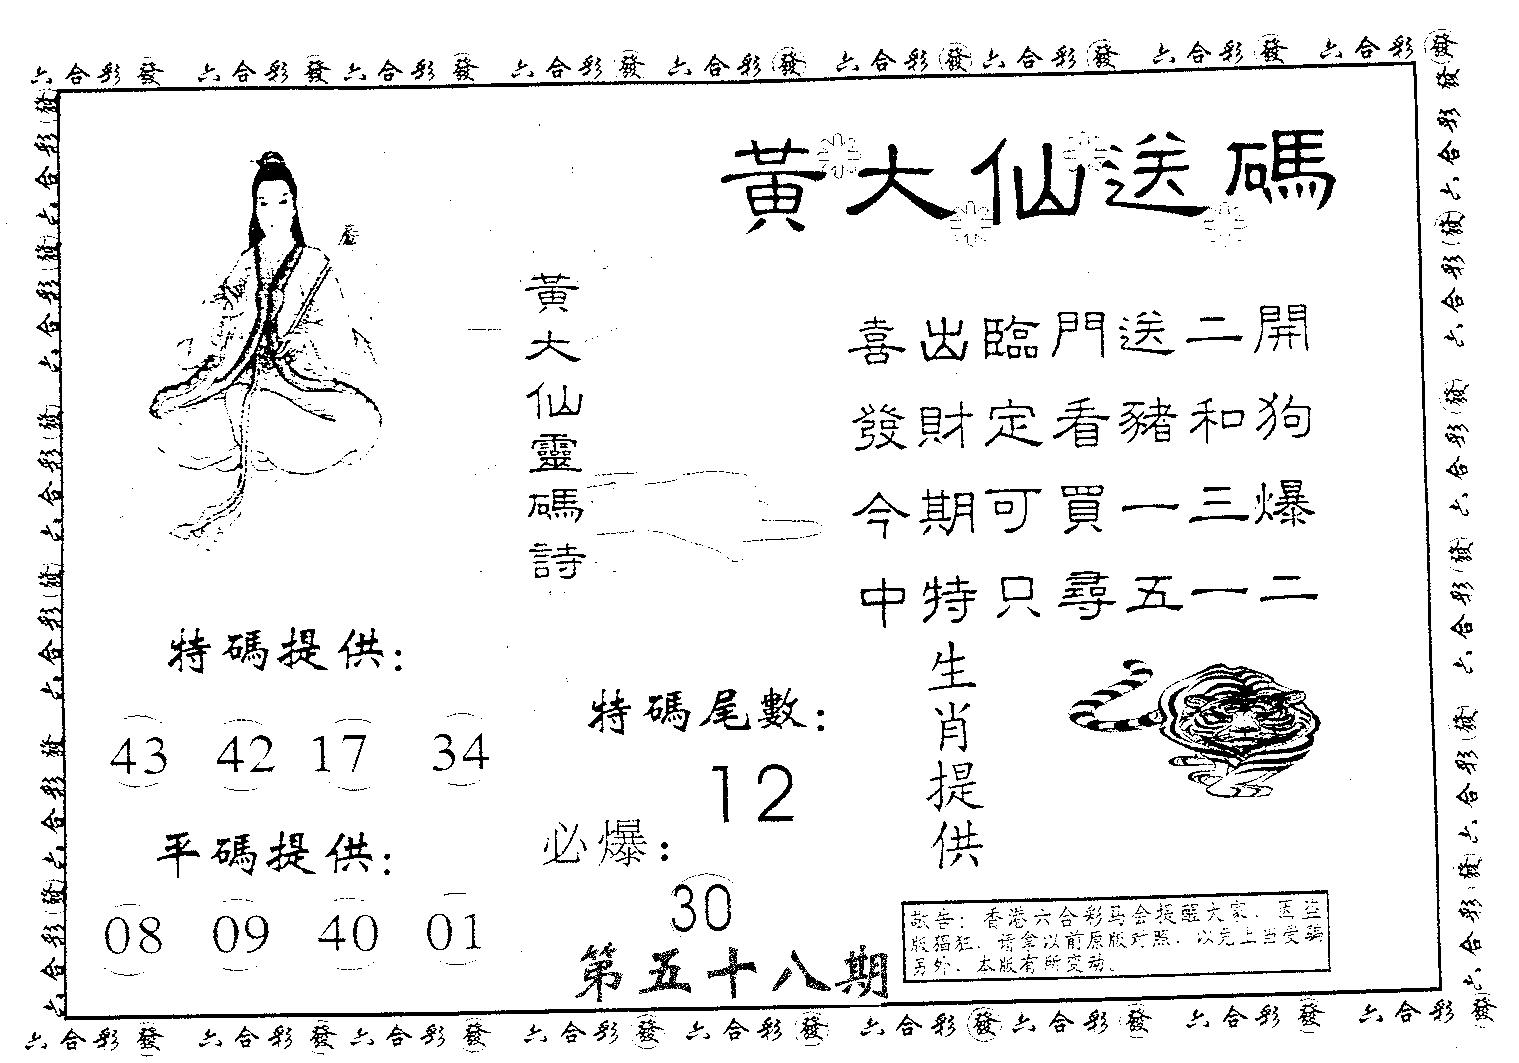 六合彩發 六合彩發 六合彩發 六合彩發 六合彩發 六合彩發 六合彩發 六合彩發 六合彩發
黃大仙送碼
黃大仙靈碼詩
喜出臨門送二開
發財定看豬和狗
今期可買一三爆
中特只尋五一二
特碼提供：
43 42 17 34
平碼提供：
08 09 40 01
特碼尾數：
12
必爆：
30
第五十八期
生肖提供
敬告：香港六合彩马会提醒大家，因盗
版猖狂，请拿以前原版对照，以免上当受骗
另外，本版有所变动。
六合彩發 六合彩發 六合彩發 六合彩發 六合彩發 六合彩發 六合彩發 六合彩發 六合彩發